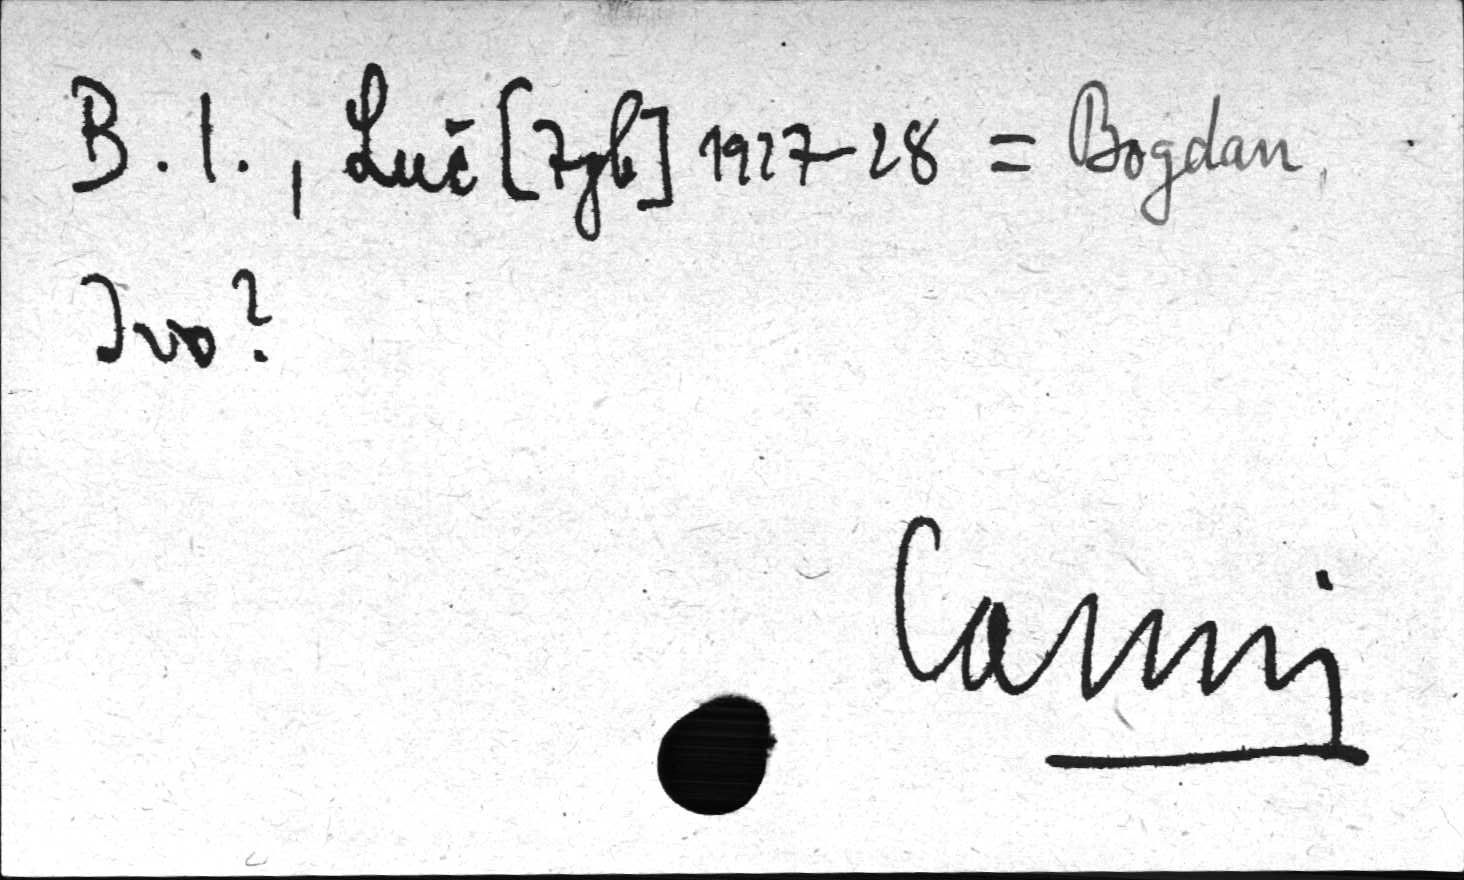 B. I., Luč [Zgb] 1927-28 = Bogdan,
Ivo?